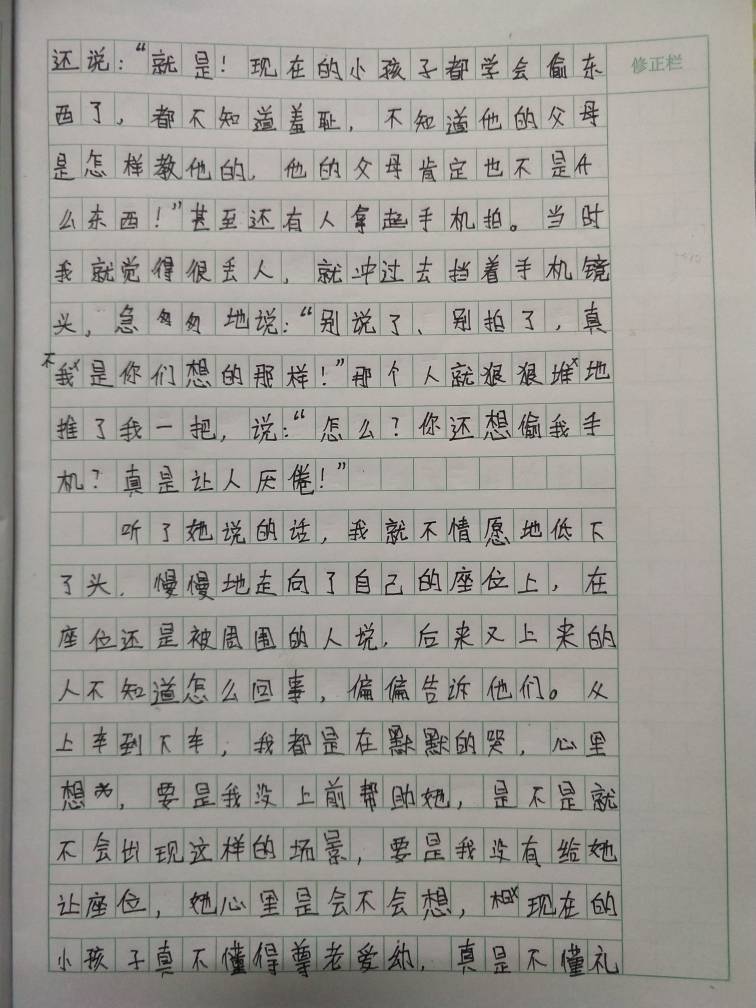 还说：“就是！现在的小孩子都学会偷东
修正栏
西了，都不知道羞耻，不知道他的父母
是怎样教他的，他的父母肯定也不是什
么东西！”甚至还有人拿起手机拍。当时
我就觉得很丢人，就冲过去挡着手机镜
头，急匆匆地说：“别说了、别拍了，真
不我是你们想的那样！”那个人就狠狠堆地
推了我一把，说：“怎么？你还想偷我手
机？真是让人厌倦！”
听了她说的话，我就不情愿地低下
了头．慢慢地走向了自己的座位上，在
座位还是被周围的人说，后来又上来的
人不知道怎么回事，偏偏告诉他们。从
上车到下车，我都是在默默的哭，心里
想为，要是我没上前帮助她，是不是就
不会出现这样的场景，要是我没有给她
让座位，她心里是会不会想，相现在的
小孩子真不懂得尊老爱幼，真是不懂礼